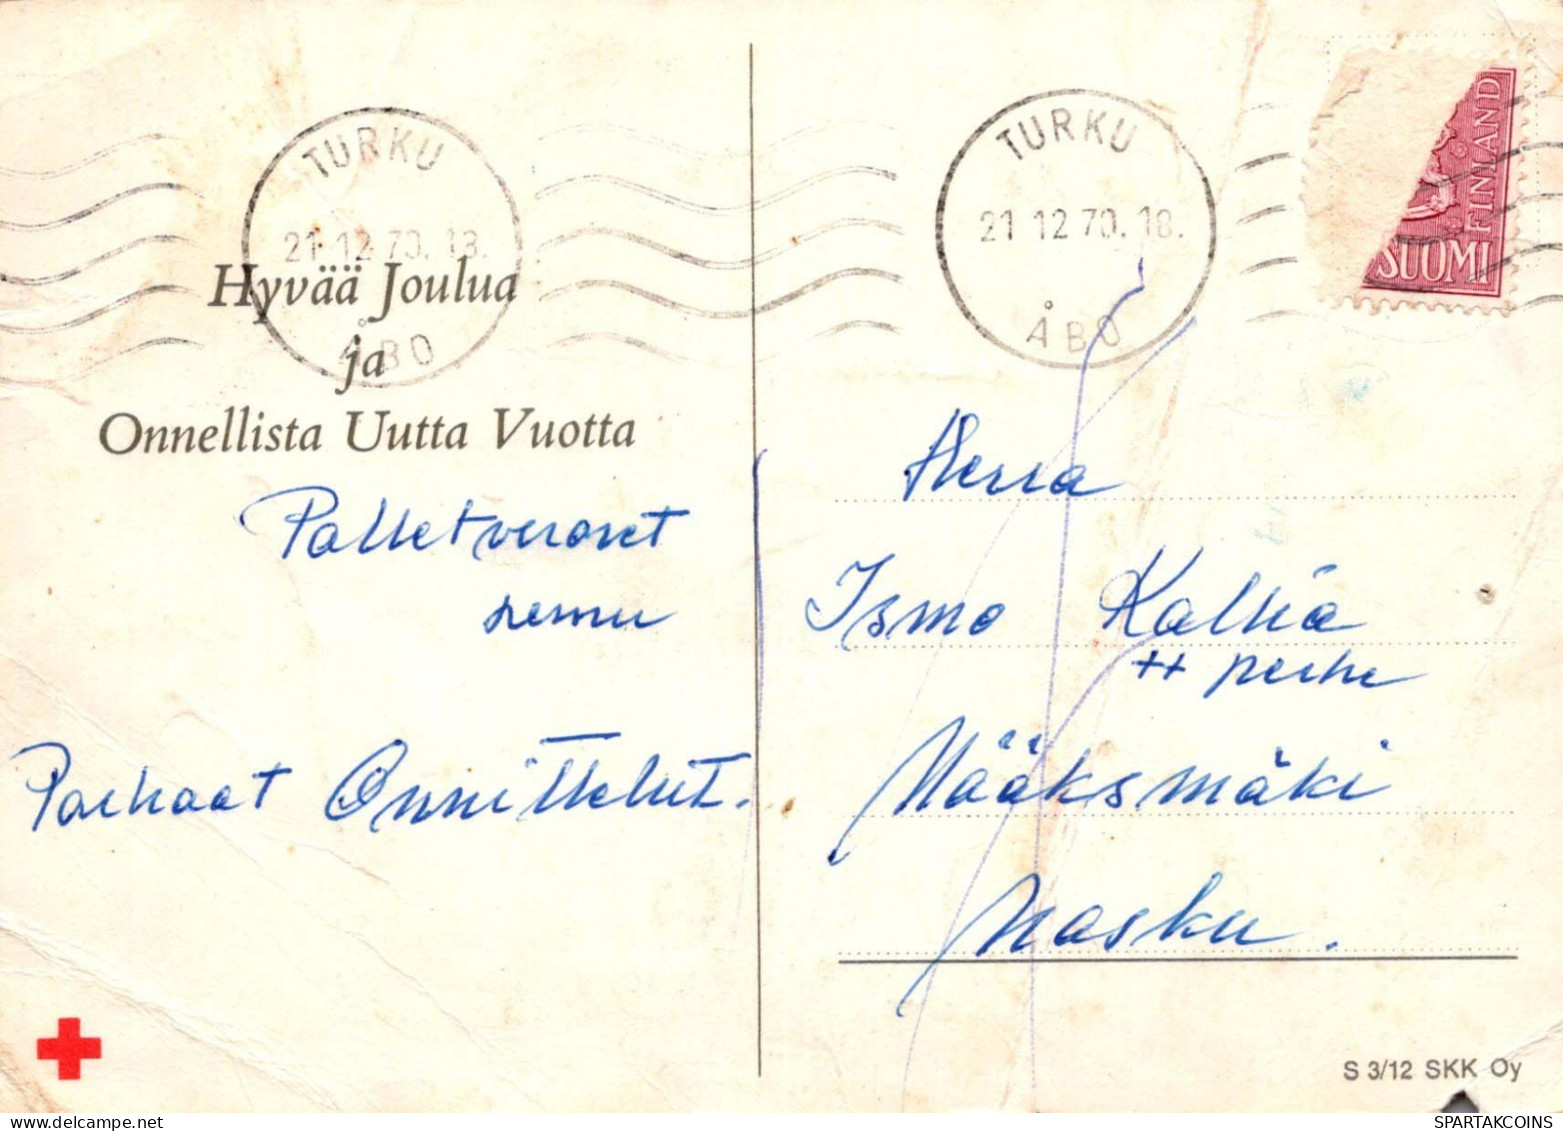 TURKU
21.12.70.18.
ÅBO
TURKU
21 12 70. 18.
ÅBO
SUOMI FINLAND
Hyvää Joulua
ja
Onnellista Uutta Vuotta
Parhaat Onnittelut.
Herra
Ismo Kalliä
++ perhe
Nääksmäki
Masku.
S 3/12 SKK Oy
SPARTAKCOINS.COM